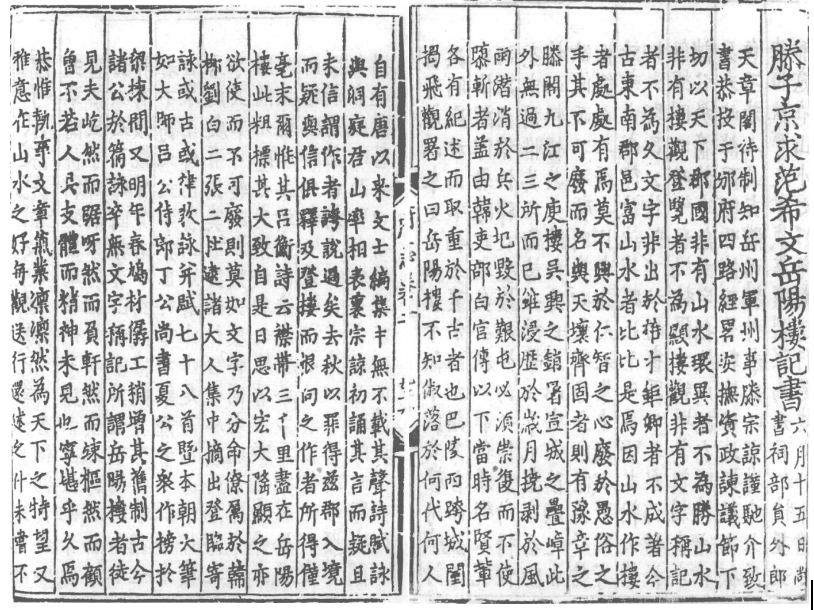 滕子京求范希文岳陽樓記書 六月十五日尚書祠部員外郎
天章閣待制知岳州軍州事滕宗諒謹馳介致
書恭投于邠府四路經畧安撫資政諫議節下
切以天下郡國非有山水環異者不為勝山水
非有樓觀登覽者不為顯樓觀非有文字稱記
者不為久文字非出於雄才鉅卿者不成著今
古東南郡邑富山水者比比是焉因山水作樓
者處處有焉莫不興於仁智之心廢於愚俗之
手其不可廢而名與天壤齊固者則有豫章之
滕閣九江之庾樓吳興之銷暑宣城之疊嶂此
外無過二三所而已雖浸歷於歲月撓剥於風
雨潜消於兵火圯毀於艱屯必須崇復而不使
隳斬者蓋由韓吏部白官傳以下當時名賢輩
各有紀述而取重於千古者也巴陵西跨城闉
揭飛觀署之曰岳陽樓不知俶落於何代何人
自有唐以來文士編集中無不載其聲詩賦詠
與洞庭君山率相表裏宗諒初誦其言而疑且
未信謂作者誇說過矣去秋以罪得兹郡入境
而疑與信俱釋及登樓而恨向之作者所得僅
毫末爾惟其吕衡詩云襟帶三千里盡在岳陽
樓此粗標其大致自是日思以宏大隆顯之亦
欲使而不可廢則莫如文字乃分命僚屬於韓
柳劉白二張二杜逮諸大人集中摘出登臨寄
詠或古或律歌詠并賦七十八首暨本朝大筆
如大師吕公侍郎丁公尚書夏公之衆作榜於
梁棟間又明年春鳩材僝工稍增其舊制古今
諸公於篇詠卒無文字稱記所謂岳陽樓者徒
見夫屹然而踞呀然而負軒然而竦樞然而顧
曾不若人具支體而精神未見也寧堪乎久焉
恭惟執事文章氣業凛凛然為天下之特望又
雅意在山水之好每觀送行還遠之什未嘗不